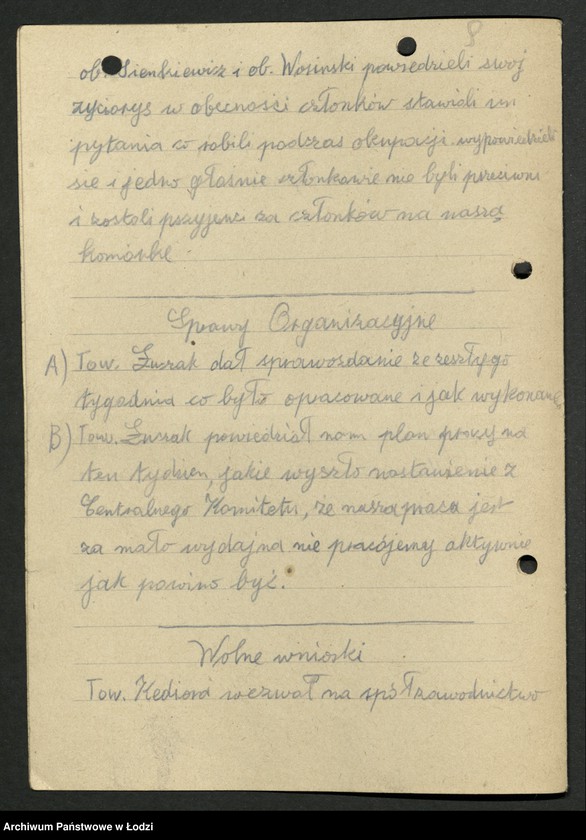 8
ob. Sienkiewicz i ob. Wosinski powiedzieli swój
życiorys w obecności członków stawiali im
pytania co robili podczas okupacji wypowiedzieli
sie i jedno głośnie członkowie nie byli przeciwni
i zostoli przyjenci za członków na naszą
komórke.
Sprawy Organizacyjne
A) Tow. Zuzak dał sprawozdanie ze zeszłygo
tygodnia co było opracowane i jak wykonane.
B) Tow. Zuzak powiedział nom plan pracy na
ten tydzien, jakie wyszło nastawienie z
Centralnego Komitetu, że nasza praca jest
za mało wydajna nie pracójemy aktywnie
jak powino być.
Wolne wnioski
Tow. wezwał na spółzawodnictwo
Archiwum Państwowe w Łodzi